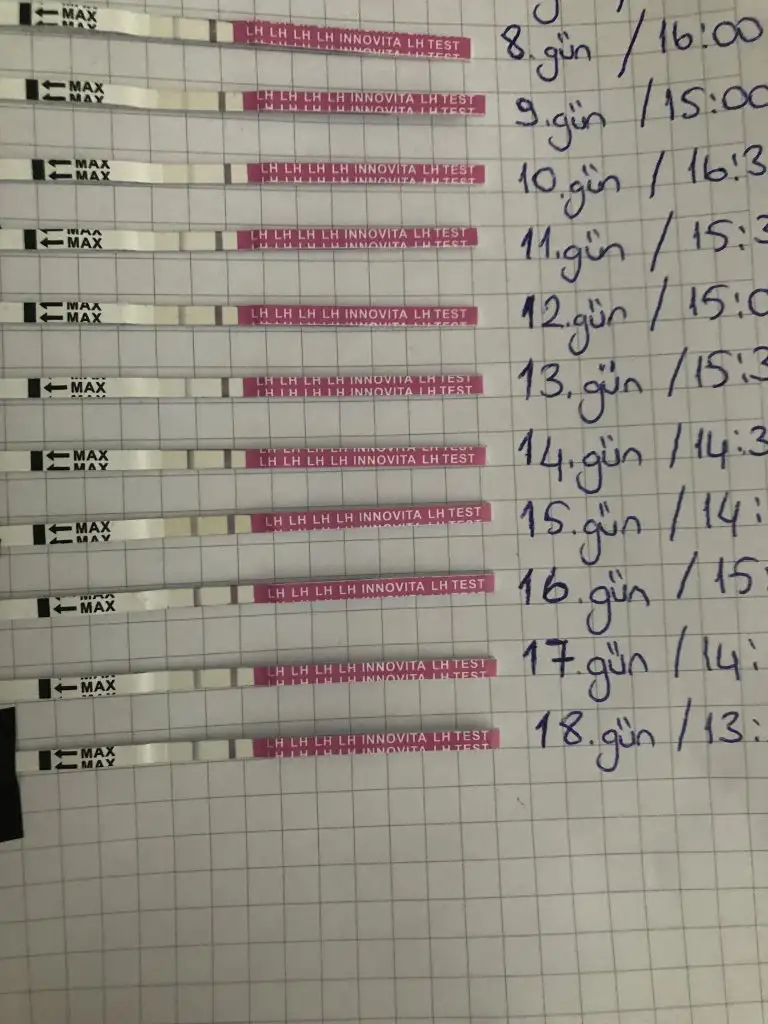 MAX LH LH LH LH INNOVITA LH TEST 8.gün / 16:00
MAX LH LH LH LH INNOVITA LH TEST 9.gün / 15:00
MAX MAX LH LH LH LH INNOVITA LH TEST 10.gün / 16:3
MAX MAX LH LH LH LH INNOVITA LH TEST 11.gün / 15:3
MAX MAX LH LH LH LH INNOVITA LH TEST 12.gün / 15:0
MAX LH LH LH LH INNOVITA LH TEST 13.gün / 15:3
MAX MAX LH LH LH LH INNOVITA LH TEST 14.gün / 14:3
MAX MAX LH LH LH LH INNOVITA LH TEST 15.gün / 14:
MAX LH LH LH LH INNOVITA LH TEST 16.gün / 15
MAX LH LH LH LH INNOVITA LH TEST 17.gün / 14:
MAX MAX LH LH LH LH INNOVITA LH TEST 18.gün / 13: